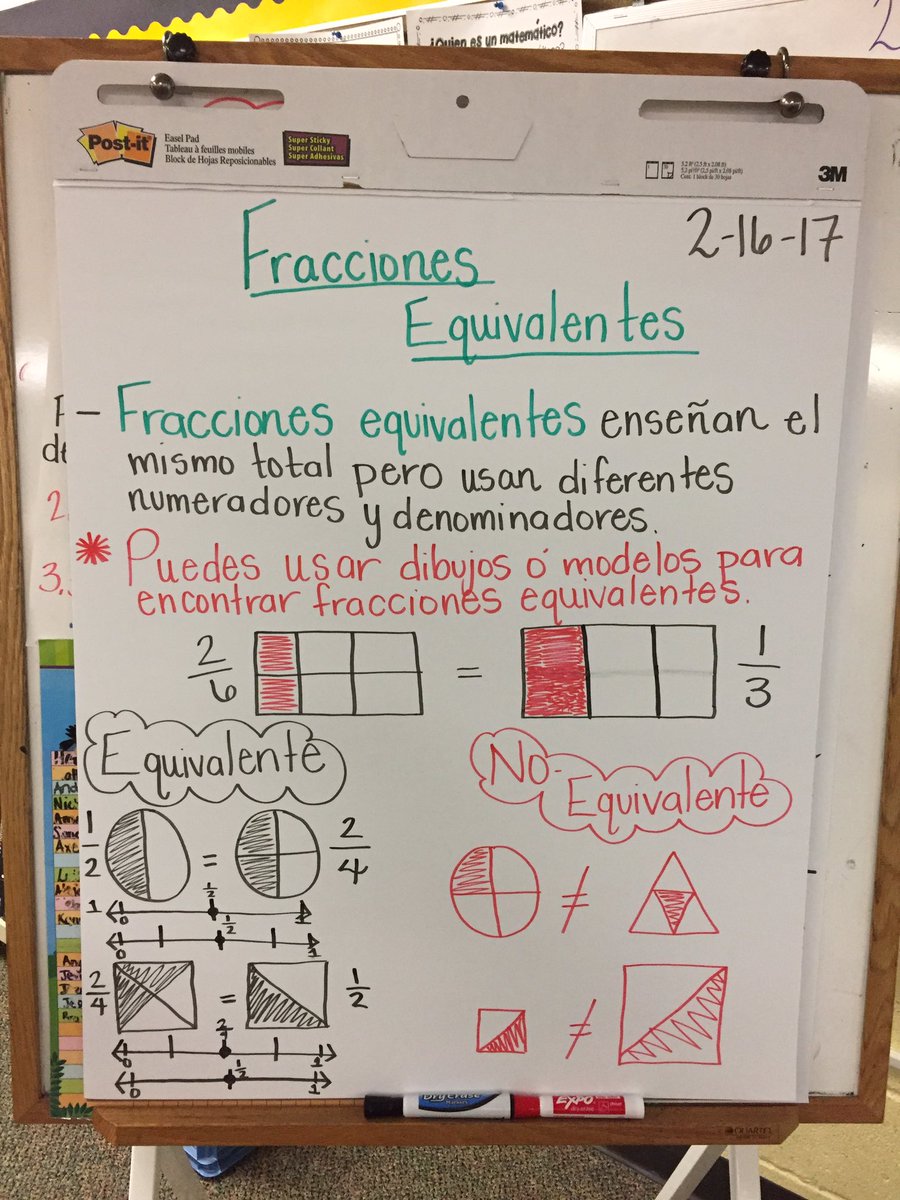 ¿Quien es un matemático?
Post-it
Easel Pad
Tableau à feuilles mobiles
Block de Hojas Reposicionables
Super Sticky
Super Collant
Super Adhesivas
3M
2-16-17
Fracciones
Equivalentes
- Fracciones equivalentes enseñan el
mismo total pero usan diferentes
numeradores y denominadores.
* Puedes usar dibujos ó modelos para
encontrar fracciones equivalentes.
2/6 = 1/3
Equivalente
No-
Equivalente
1/2 = 2/4
≠
1/2
1 0 1
1/2
0 1
2/4 = 1/2
≠
2/4
0 1
1/2
0 1
Dry Erase
Markers
EXPO
QUARTET